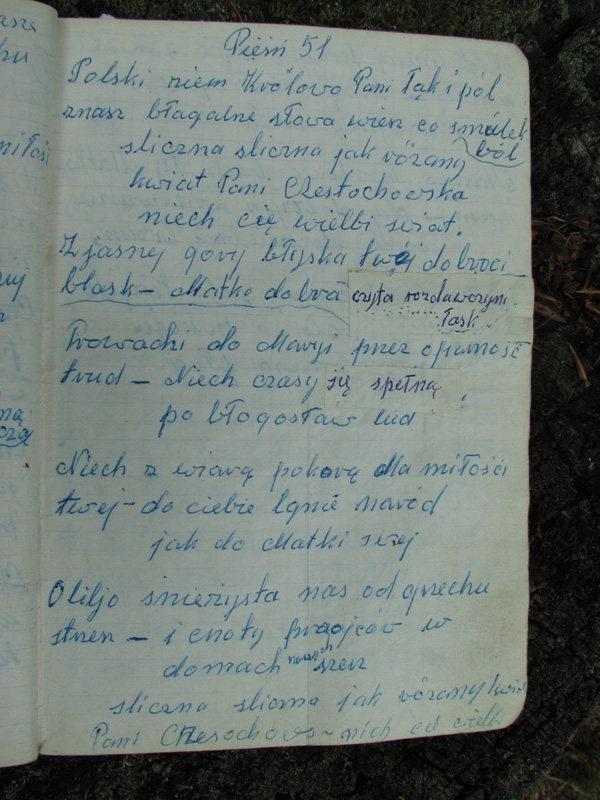 Pieśń 51
Polski ziem Królowo Pani łąk i pól
znasz błagalne słowa wiesz co smutek
ból
sliczna sliczna jak różany
kwiat Pani Czestochowska
niech cię wielbi swiat.
Z jasnej gory błyska twój dobroci
blask – Matko dobra czysta rozdawczyni
łask
Prowadki do Maryi przez ofiarność
trud – Niech czasy się spełną
po błogosław lud
Niech z wiarą pokorą dla miłośći
twej – do ciebie lgnie naród
jak do Matki swej
O liljo śnieżysta nas od grzechu
strzez – i cnoty praojców w
domach naszych szerz
sliczna sliczna jak różany kwia
Pani Czesochows – nich cie wielbi